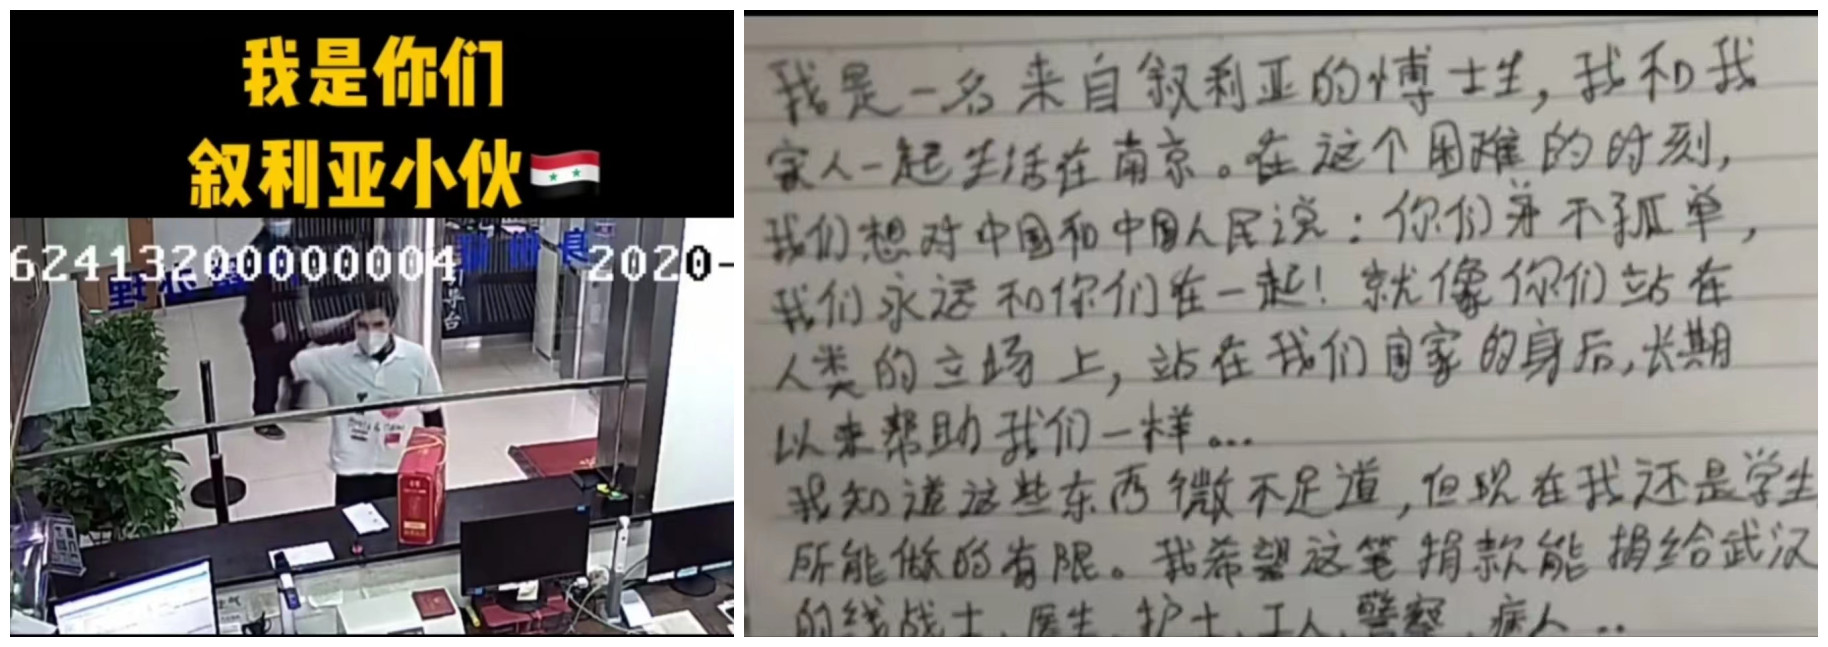 我是你们
叙利亚小伙
62413200000000004
2020-
导
台
我是一名来自叙利亚的博士生，我和我
家人一起生活在南京。在这个困难的时刻，
我们想对中国和中国人民说：你们并不孤单，
我们永远和你们在一起！就像你们站在
人类的立场上，站在我们国家的身后，长期
以来帮助我们一样。...
我知道这些东西微不足道，但现在我还是学生
所能做的有限。我希望这笔捐款能捐给武汉
的线战士、医生、护士、工人、警察、病人...